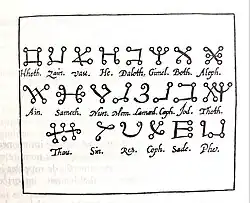 Hheth. Zain. vau. He. Daleth. Gimel. Beth. Aleph.
Ain. Samech. Nun. Mem. Lamed. Caph. Jod. Theth.
Thau. Sin. Res. Coph. Sade. Phe.